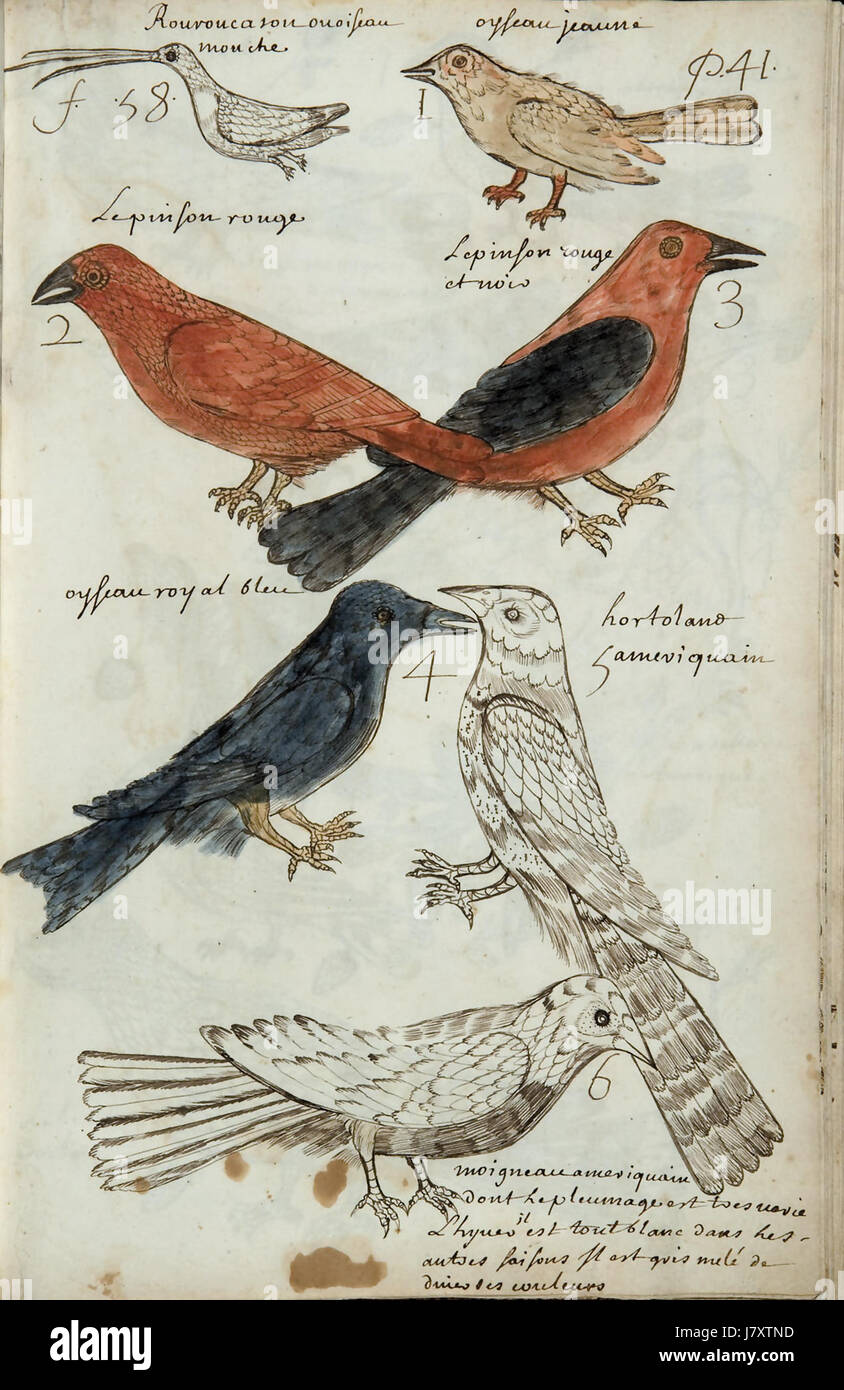 Rouroucason ouoiseau
mouche
f. 58.
oyseau jeaune
P. 41.
1
Lepinson rouge
2
Lepinson rouge
et noir
3
oyseau royal bleu
4
hortoland
5 ameriquain
6
moigneau ameriquain
dont le pleumage est tres varie
L'hyver il est tout blanc dans les
autres saisons Il est gris melé de
diverses couleurs
alamy
alamy
Image ID: J7XTND
www.alamy.com